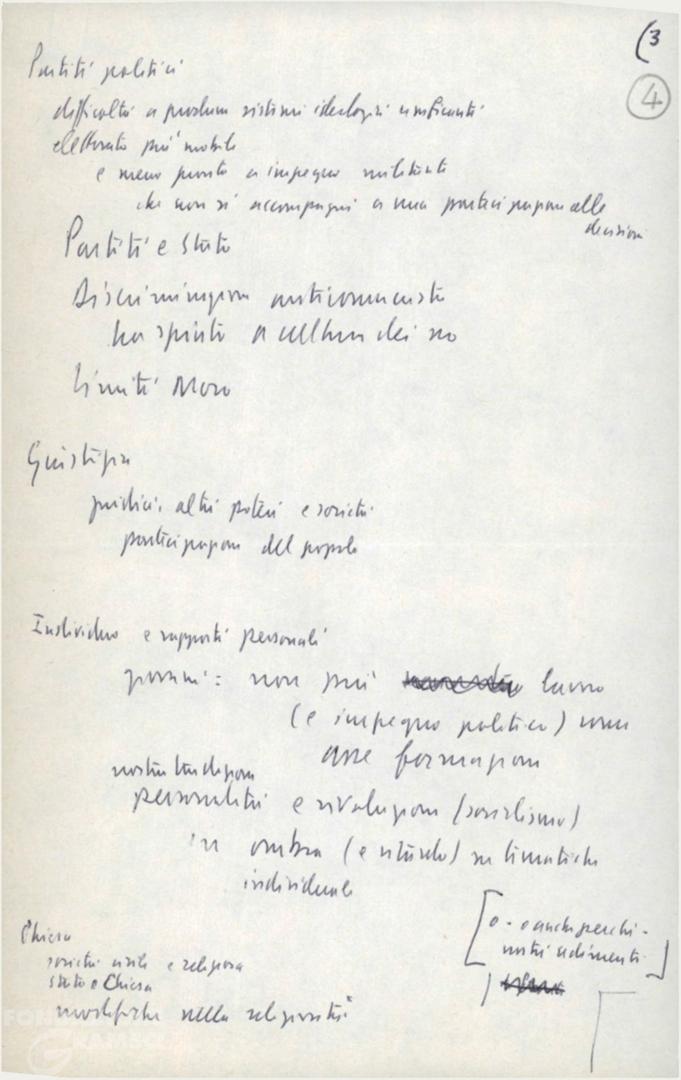 (3
4
Partiti politici
difficoltà a produrre sistemi ideologici unificanti
elettorato più mobile
e meno pronto a impegno militante
che non si accompagni a una partecipazione alle
decisioni
Partiti e Stato
Discriminazione anticomunista
ha spinto a cultura dei no
limiti Moro
Giustizia
giudici, altri poteri e società
partecipazione del popolo
Individuo e rapporti personali
giovani: non più lavoro
(e impegno politico) come
asse formazione
nostra tradizione
personalità e rivoluzione (socialismo)
in ombra (e ritardo) su tematiche
individuali
[o - o anche perché -
nostri cedimenti]
Chiesa
società civile e religiosa
Stato e Chiesa
modifiche nella religiosità